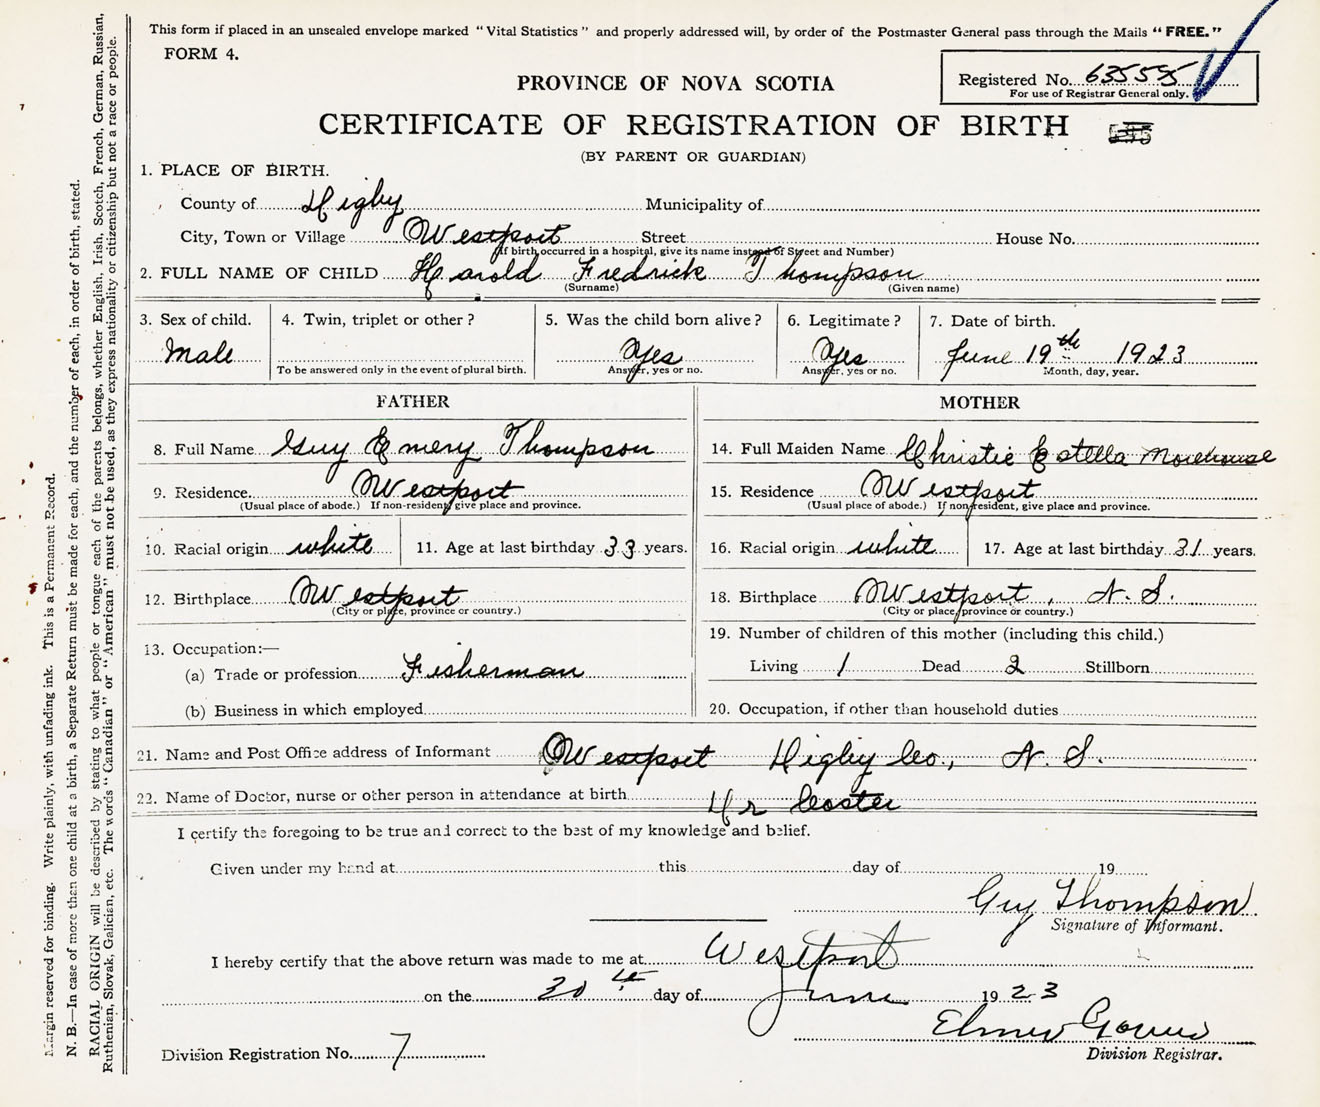 This form if placed in an unsealed envelope marked "Vital Statistics" and properly addressed will, by order of the Postmaster General pass through the Mails "FREE."
FORM 4.
Registered No. 635555
For use of Registrar General only.
PROVINCE OF NOVA SCOTIA
CERTIFICATE OF REGISTRATION OF BIRTH
(BY PARENT OR GUARDIAN)
1. PLACE OF BIRTH.
County of Digby Municipality of
City, Town or Village Westport Street House No.
(If birth occurred in a hospital, give its name instead of Street and Number)
2. FULL NAME OF CHILD Harold Fredrick Thompson
(Surname) (Given name)
3. Sex of child. 4. Twin, triplet or other? 5. Was the child born alive? 6. Legitimate? 7. Date of birth.
Male Yes Yes June 19th 1923
To be answered only in the event of plural birth. Answer, yes or no. Answer, yes or no. Month, day, year.
FATHER MOTHER
8. Full Name Guy Emery Thompson 14. Full Maiden Name Christie Estella Morehouse
9. Residence Westport 15. Residence Westport
(Usual place of abode.) If non-resident, give place and province. (Usual place of abode.) If non-resident, give place and province.
10. Racial origin white 11. Age at last birthday 33 years. 16. Racial origin white 17. Age at last birthday 31 years.
12. Birthplace Westport 18. Birthplace Westport, N. S.
(City or place, province or country.) (City or place, province or country.)
13. Occupation:— 19. Number of children of this mother (including this child.)
(a) Trade or profession Fisherman Living 1 Dead 2 Stillborn
(b) Business in which employed 20. Occupation, if other than household duties
21. Name and Post Office address of Informant Westport Digby Co., N. S.
22. Name of Doctor, nurse or other person in attendance at birth Dr
I certify the foregoing to be true and correct to the best of my knowledge and belief.
Given under my hand at this day of 19
Guy Thompson
Signature of Informant.
I hereby certify that the above return was made to me at Westport
on the 30th day of June 1923
Elmer
Division Registrar.
Division Registration No. 7
Margin reserved for binding. Write plainly, with unfading ink. This is a Permanent Record.
N. B.—In case of more than one child at a birth, a Separate Return must be made for each, and the number of each, in order of birth, stated.
RACIAL ORIGIN will be described by stating to what people or tongue each of the parents belongs, whether English, Irish, Scotch, French, German, Russian,
Ruthenian, Slovak, Galician, etc. The words "Canadian" or "American" must not be used, as they express nationality or citizenship but not a race or people.